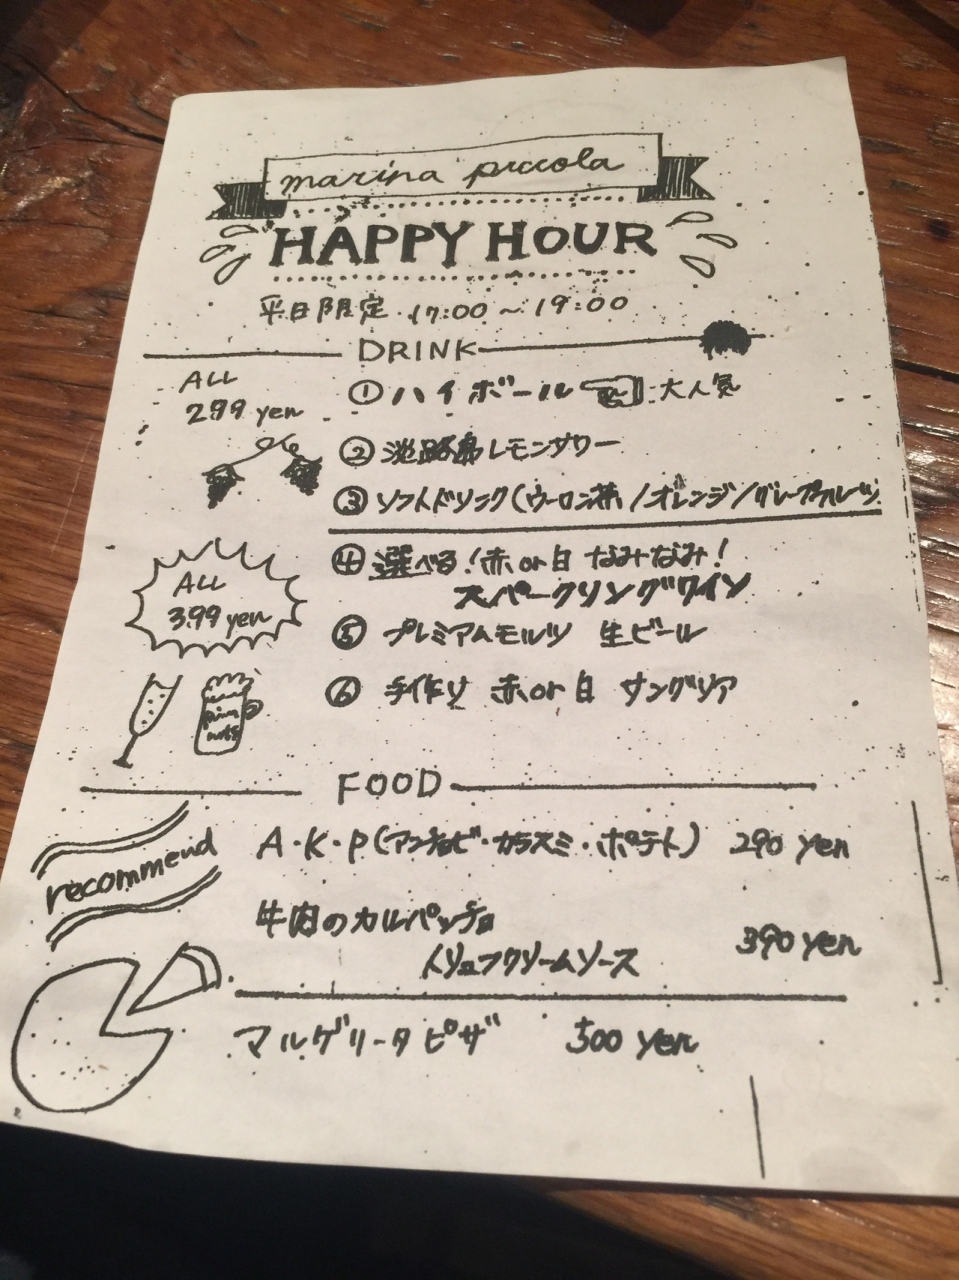 marina piccola
HAPPY HOUR
平日限定 17:00～19:00
DRINK
ALL
299 yen
①ハイボール 大人気
②淡路島レモンサワー
③ソフトドリンク(ウーロン茶/オレンジ/グレープフルーツ
ALL
399 yen
④選べる!赤or白 なみなみ!
スパークリングワイン
⑤プレミアムモルツ 生ビール
⑥手作り 赤or白 サングリア
FOOD
recommend
A・K・P(アンチョビ・カラスミ・ポテト) 290 yen
牛肉のカルパッチョ
トリュフクリームソース 390 yen
マルゲリータピザ 500 yen